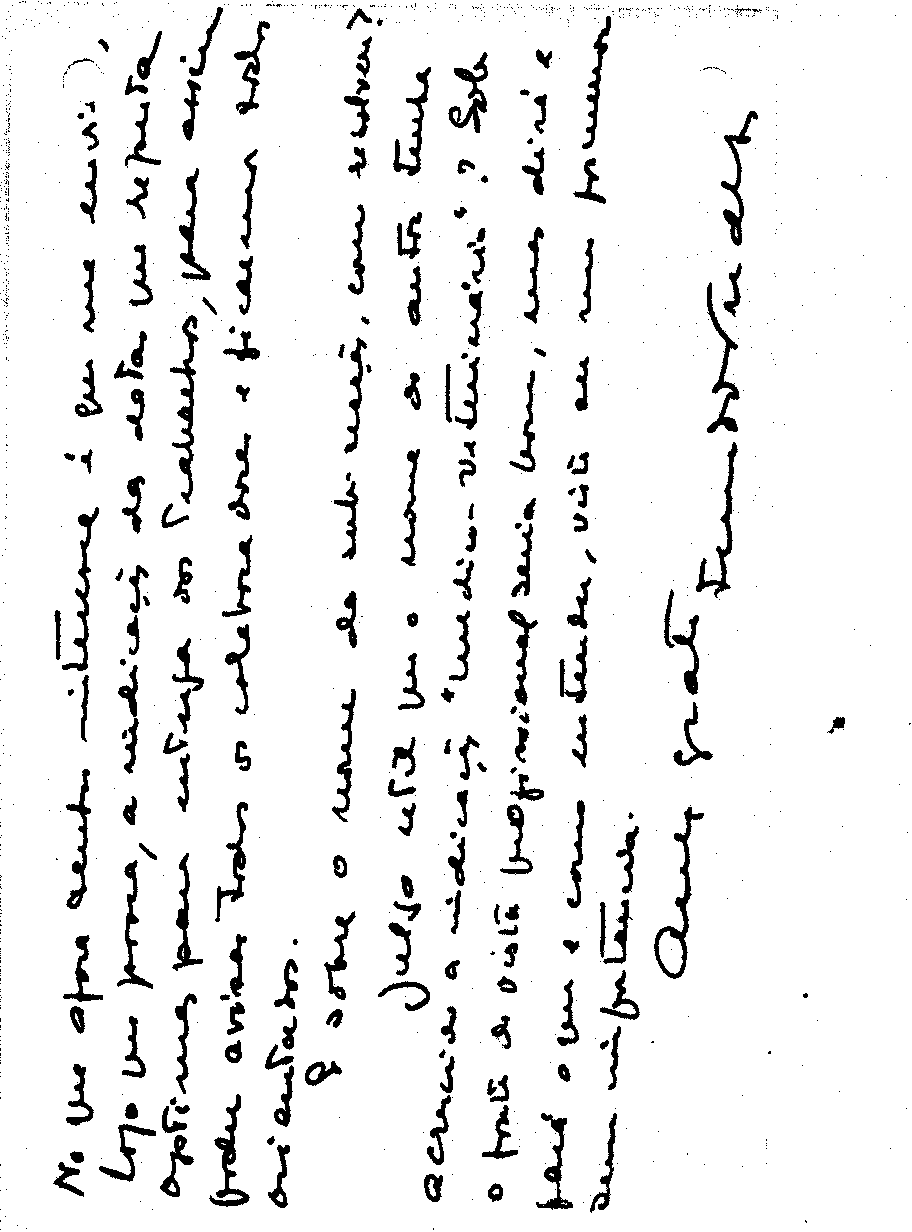 No que agora muito interesse é que me envie,
logo que possa, a indicação da data que reputa
optima para entrega dos trabalhos, para assim
poder avisar todos os colaboradores e ficarem todos
orientados.
E sobre o nome da sub-secção, como resolveu?
Julgo util que o nome do autor tenha
acrescido a indicação "médico-veterinário"? Sob
o ponto de vista profissional seria bom, mas dirá e
fará o que e como entender, visto ser um pormenor
sem importancia.
Amº grato